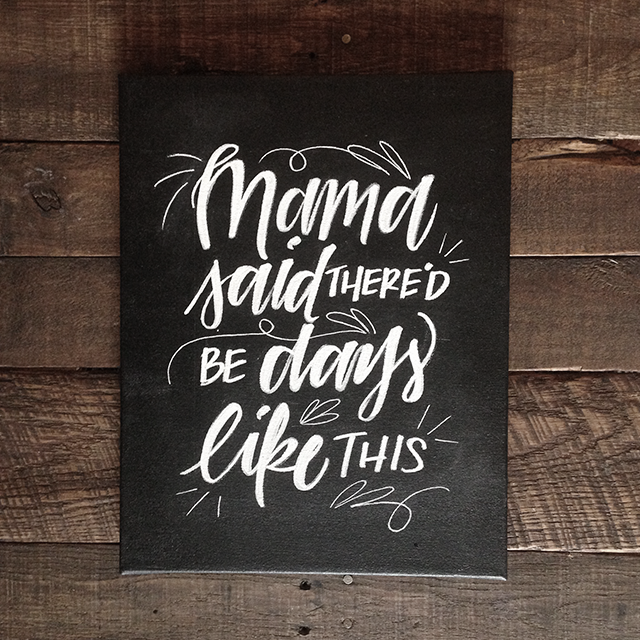 Mama
said THERE'D
BE days
like THIS